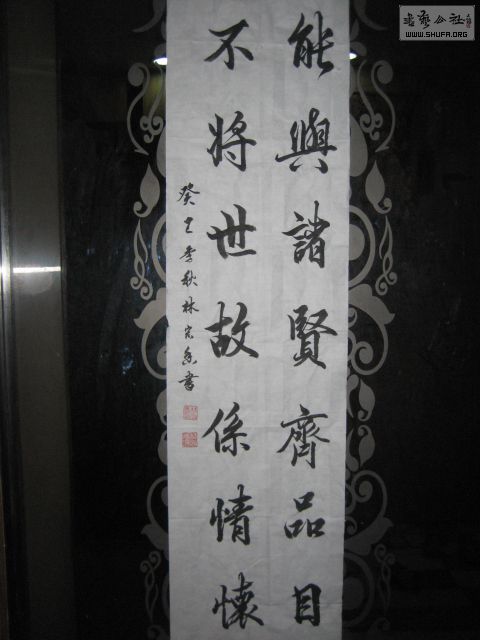 能與諸賢齊品目
不將世故係情懷
癸巳季秋林宏書
書藝公社
WWW.SHUFA.ORG